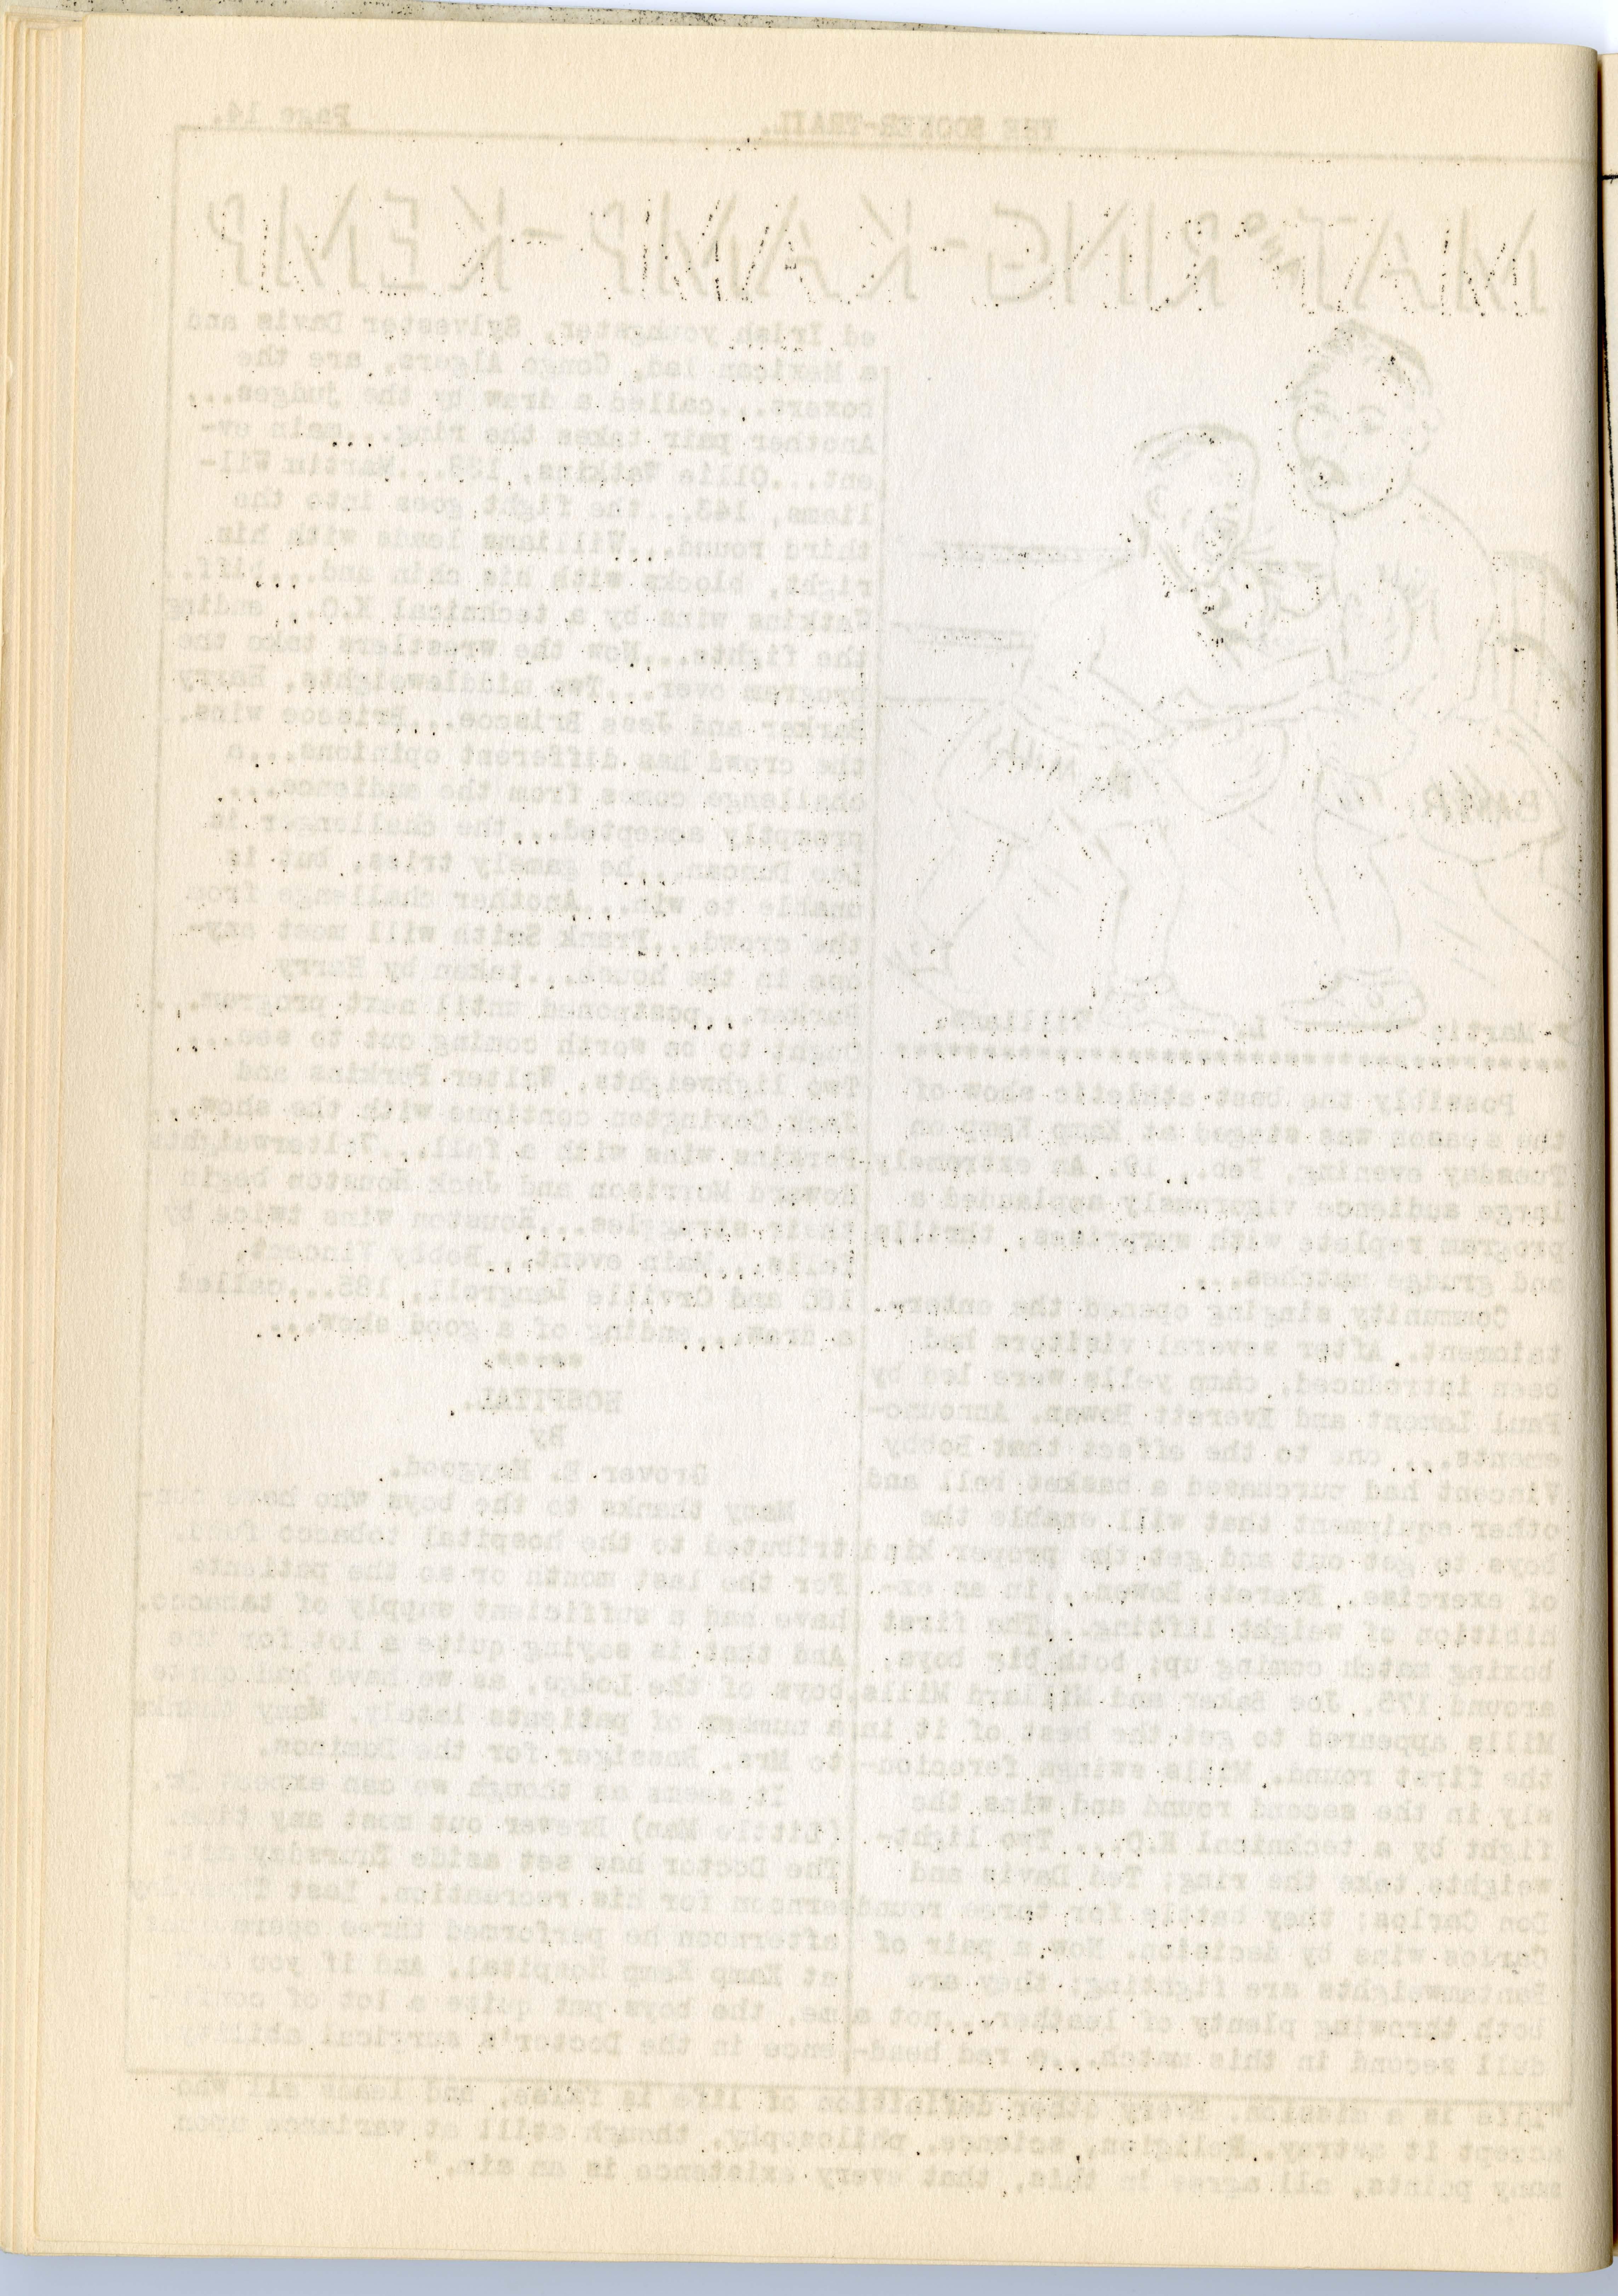 THE BOOKER-TRAIL. Page 14.
MAT "N" RING - KAMP - KEMP
BAKER
Martin Williams
Possibly the best athletic show of
the season was staged at Kamp Kemp on
Tuesday evening, Feb., 19. An extremely
large audience vigorously applauded a
program replete with surprises, thrills
and grudge matches...
Community singing opened the enter-
tainment. After several visitors had
been introduced, camp yells were led by
Paul Lemont and Everett Bowen. Announc-
ements... one to the effect that Bobby
Vincent had purchased a basket ball and
other equipment that will enable the
boys to get out and get the proper kind
of exercise. Everett Bowen.. in an ex-
hibition of weight lifting...The first
boxing match coming up; both big boys;
around 175. Joe Baker and Millard Mills
Mills appeared to get the best of it in
the first round. Mills swings ferociou-
sly in the second round and wins the
fight by a technical K.O... Two light-
weights take the ring; Ted Davis and
Don Carlos; they battle for three round
Carlos wins by decision. Now a pair of
Bantamweights are fighting; they are
both throwing plenty of leather...not a
dull second in this match...a red head-
ed Irish youngster, Sylvester Davis and
a Mexican lad, Gongo Algers, are the
boxers...called a draw by the judges...
Another pair takes the ring...main ev-
ent...Ollie Watkins, 138...Martin Wil-
liams, 143...the fight goes into the
third round...Williams leads with his
right, blocks with his chin and...biff.
Watkins wins by a technical K.O., ending
the fights...Now the wrestlers take the
program over...Two middleweights, Harry
Barker and Jess Briscoe...Briscoe wins.
the crowd has different opinions...a
challenge comes from the audience...
promptly accepted...the challenger is
Lee Duncan...he gamely tries, but is
unable to win...Another challenge from
the crowd...Frank Smith will meet any-
one in the house...taken by Harry
Barker...postponed until next program...
Ought to be worth coming out to see...
Two lighweights, Walter Perkins and
Jack Covington continue with the show...
Perkins wins with a fall...Welterweights
Howard Morrison and Jack Houston begin
their struggles...Houston wins twice by
falls...Main event...Bobby Vincent,
160 and Orville Longroll, 185...called
a draw...ending of a good show...
*****
HOSPITAL.
By
Grover E. Haygood.
Many thanks to the boys who have con-
tributed to the hospital tobacco fund.
For the last month or so the patients
have had a sufficient supply of tabacco.
And that is saying quite a lot for the
boys of the Lodge, as we have had quite
a number of patients lately. Many thanks
to Mrs. Bussiger for the Dominos.
It seems as though we can expect Dr.
(Little Man) Brewer out most any time.
The Doctor has set aside Thursday aft-
ernoon for his recreation. Last Thursday
afternoon he performed three opera
at Kamp Kemp Hospital. And if you
me, the boys put quite a lot of confid-
ence in the Doctor's surgical ability
"Life is a mission. Every other definition of life is false, and leads all who
accept it astray. Religion, science, philosophy, though still at variance upon
many points, all agree in this, that every existence is an aim."